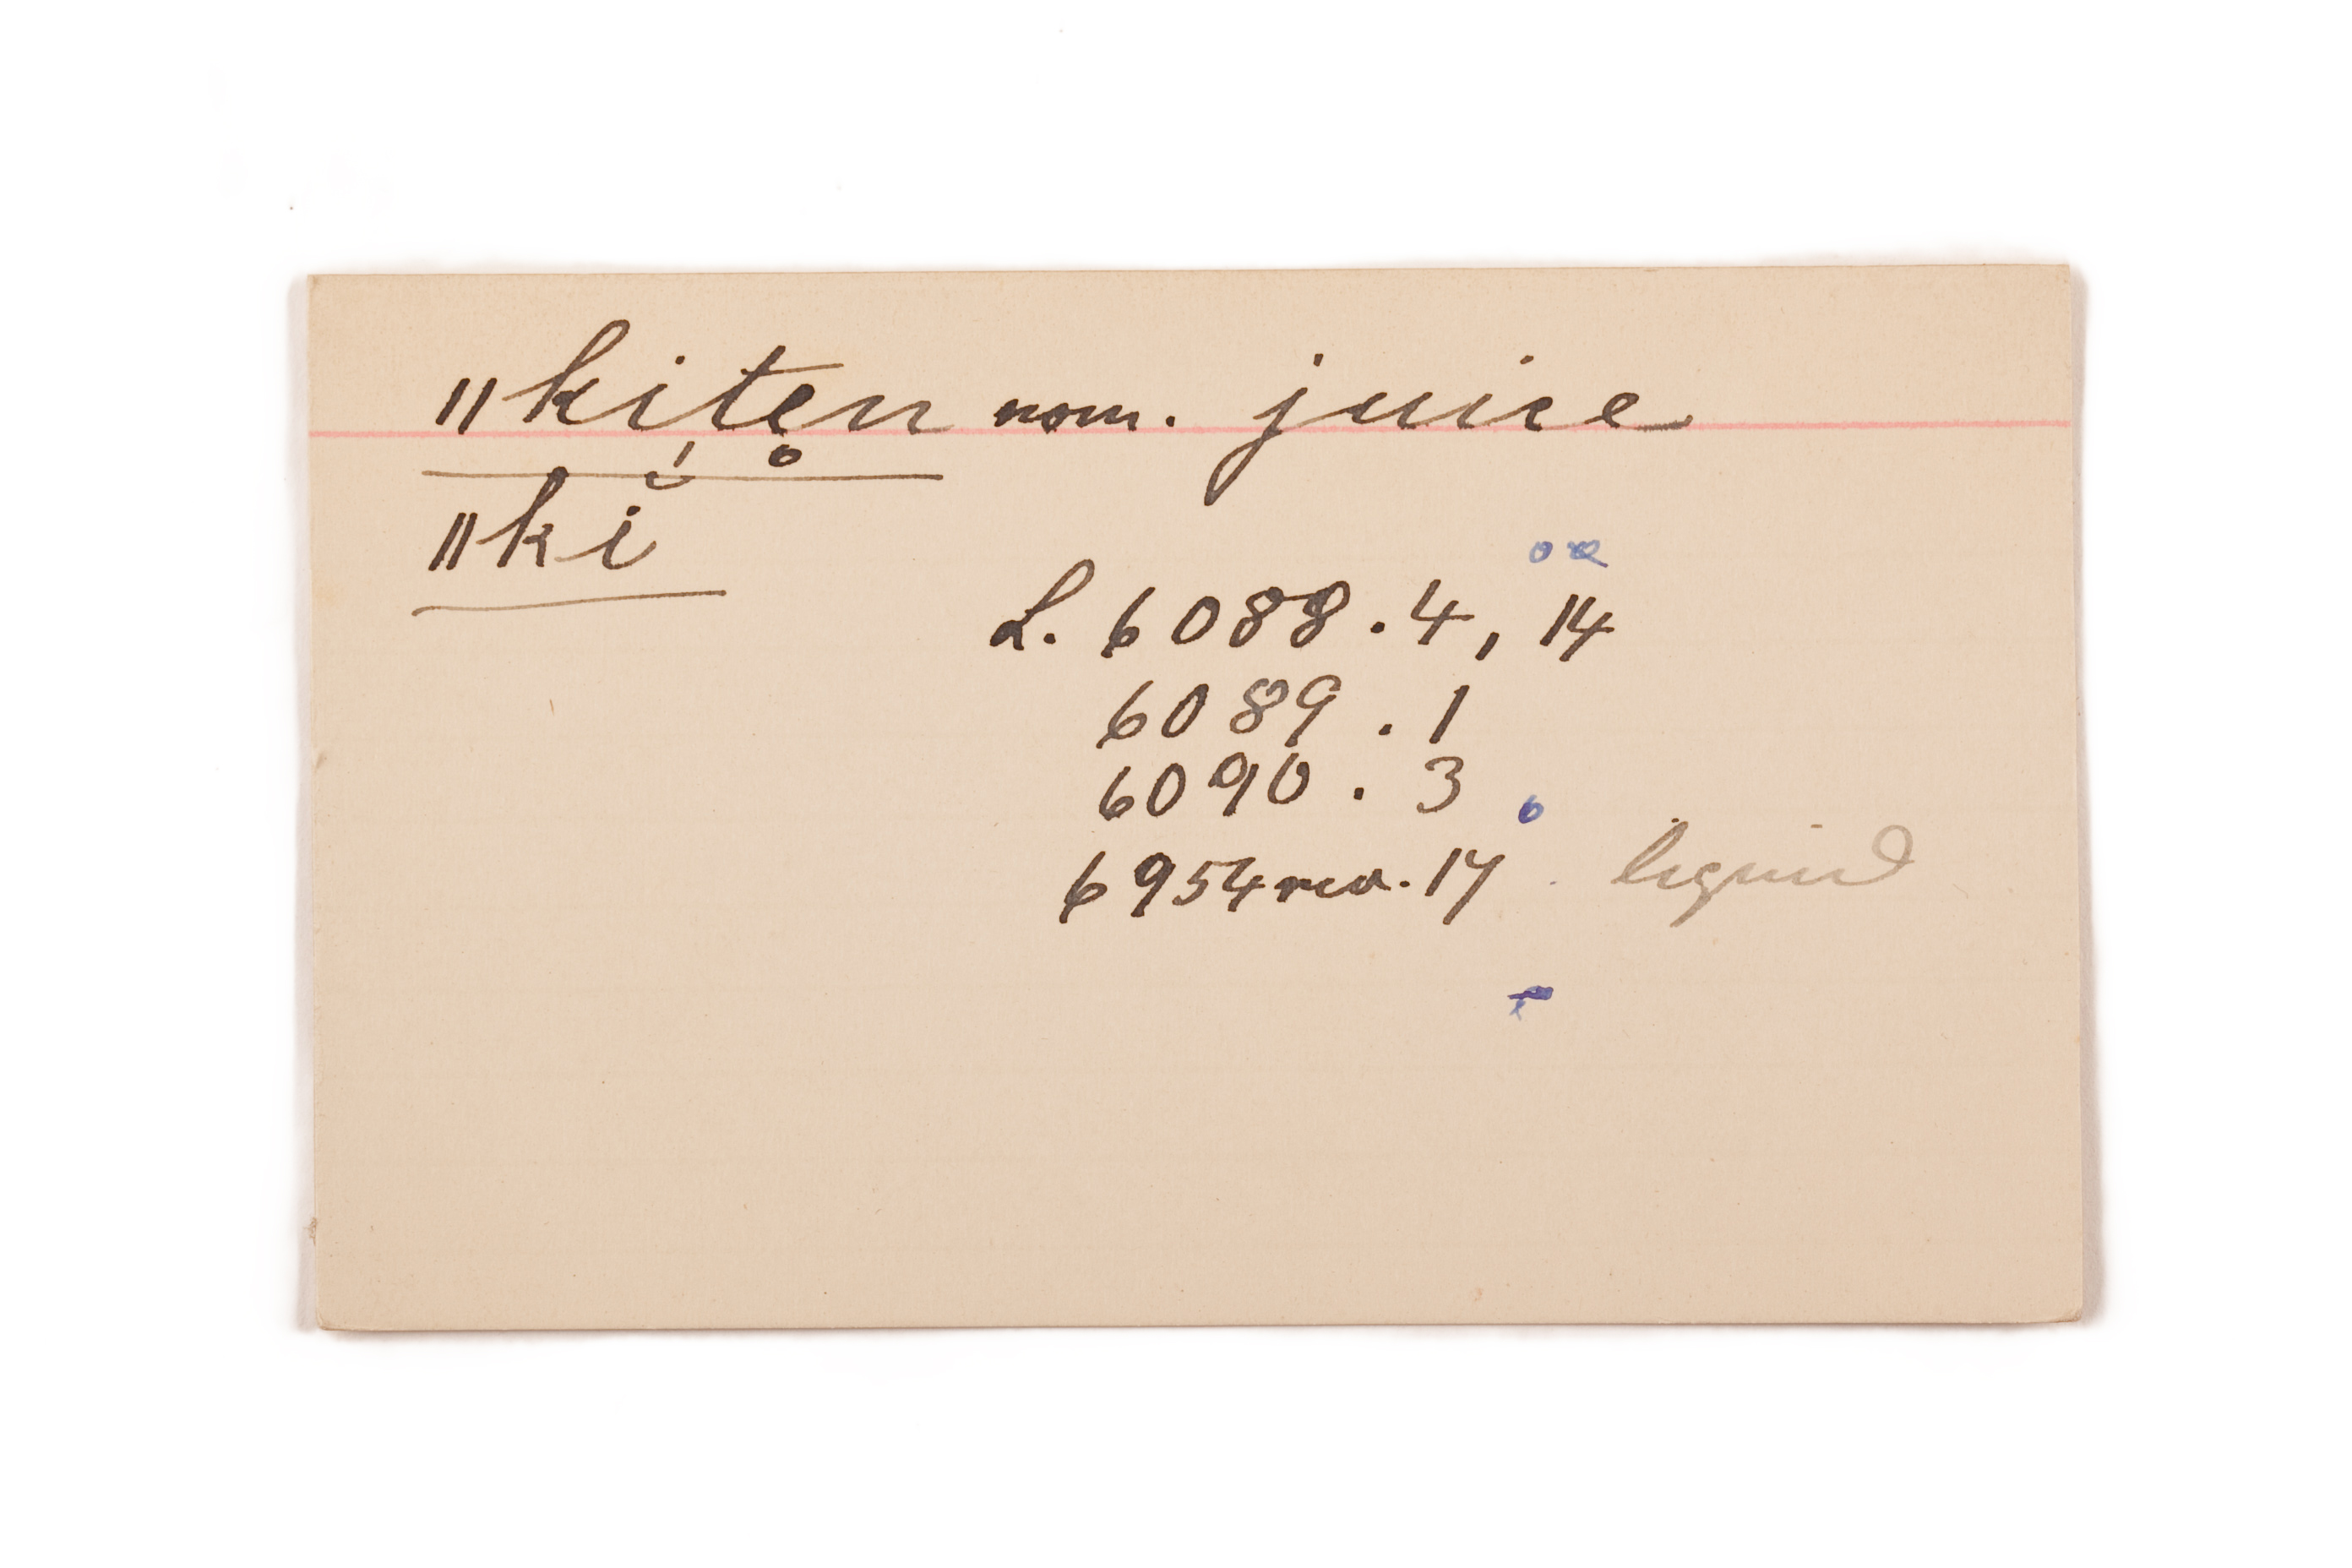 ǁkiṭe̥n nom. juice
ǁkĭ
L. 6088.4, 14
6089.1
6090.3
6954 rev. 17 liquid